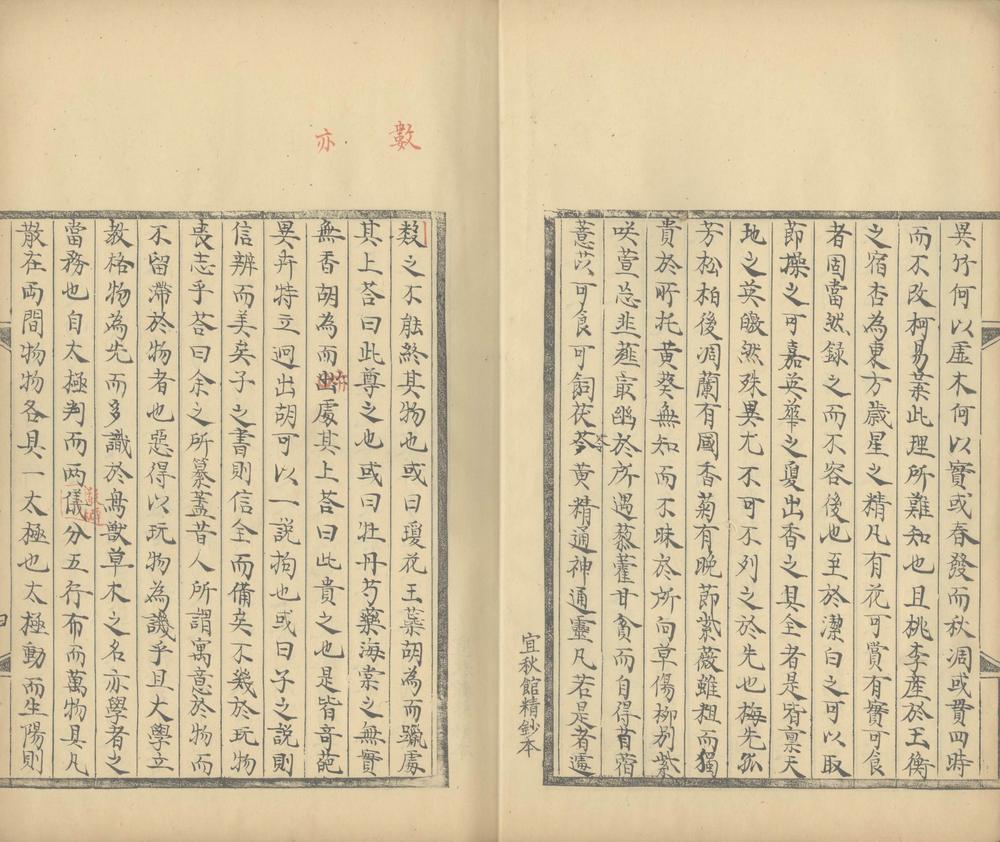 異竹何以虛木何以實或春發而秋凋或貫四時
而不改柯易葉此理所難知也且桃李產於玉衡
之宿杏為東方歲星之精凡有花可賞有實可食
者固當然録之而不容後也至於潔白之可以取
節操之可嘉英華之敻出香之具全者是皆禀天
地之英皦然殊異尤不可不列之於先也梅先孤
芳松柏後凋蘭有國香菊有晚節紫薇雖粗而獨
貴於所托黄葵無知而不昧於所向草傷柳别紫
咲萱忘韭薤最幽於所遇藜藿甘貧而自得苜蓿
薏苡可食可飼茯苓黄精通神通靈凡若是者遽
宜秋館精鈔本
數
亦
数之不能終其物也或曰瓊花玉蘂胡為而躐處
其上荅曰此尊之也或曰牡丹芍藥海棠之無實
無香胡為而出處其上荅曰此貴之也是皆竒葩
異卉特立迥出胡可以一説拘也或曰子之説則
信辨而美矣子之書則信全而備矣不幾於玩物
喪志乎荅曰余之所纂葢昔人所謂寓意於物而
不留滯於物者也惡得以玩物為譏乎且大學立
教格物為先而多識於鳥獸草木之名亦學者之
當務也自太極判而兩儀分五行布而萬物具凡
散在兩間物物各具一太極也太極動而生陽則